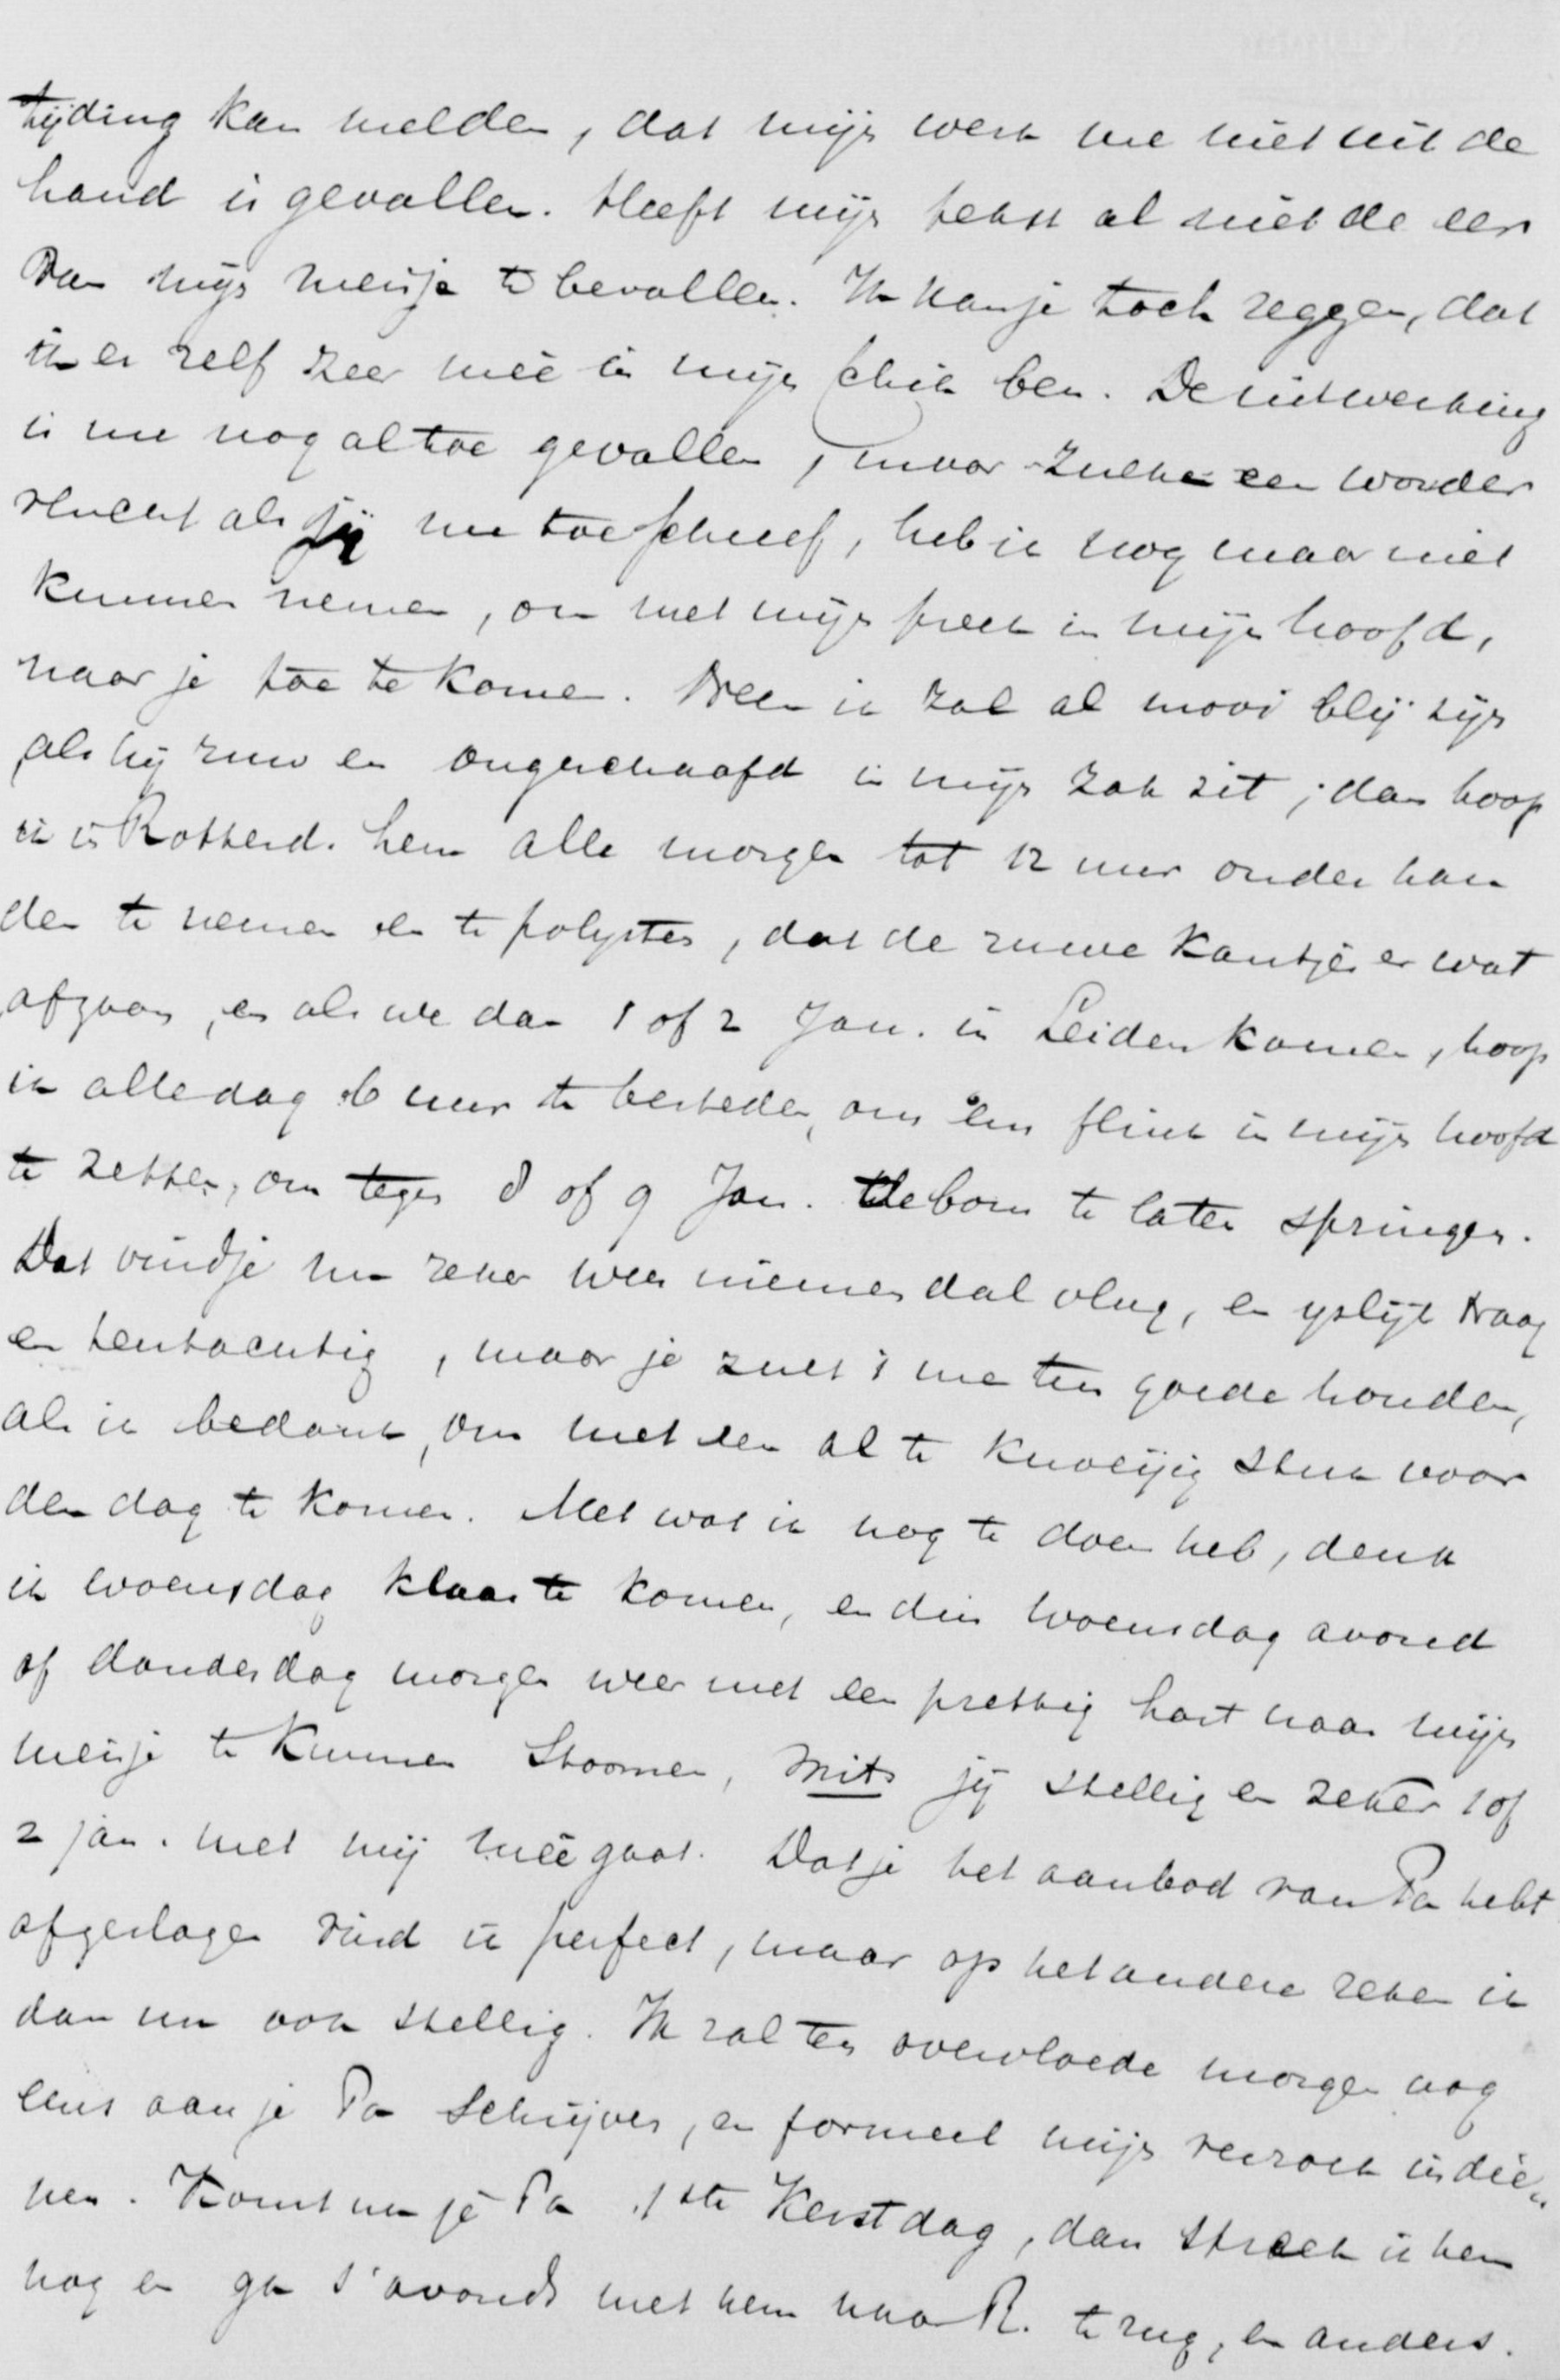 tijding kan melden, dat mijn werk me niet uit de
hand is gevallen. Heeft mijn tekst al niet de eer
van mijn meisje te bevallen. Ik kan je toch zeggen, dat
ik er zelf zeer meê in mijn schik ben. De uitwerking
is me nog al toe gevallen, maar zulke een wonder
vlucht als jij me toeschreef, heb ik nog maar niet
kunnen nemen, om met mijn preek in mijn hoofd,
naar je toe te komen. Neen ik zal al mooi blij zijn
als hij ruw en ongeschaafd in mijn zak zit; dan hoop
ik in Rotterd. hem alle morgen tot 12 uur onder han
den te nemen en te polysten, dat de ruwe kantjes er wat
afgaan, en als we dan 1 of 2 Jan. in Leiden komen, hoop
ik alle dag 6 uur te besteden, om em flink in mijn hoofd
te zetten, om tegen 8 of 9 Jan. de bom te laten springen.
Dat vindje nu zeker weer niemendal vlug, en yslijk traag
en tentachtig, maar je zult 't me ten goede houden,
als ik bedank, om met een al te knoeijig stuk voor
den dag te komen. Met wat ik nog te doen heb, denk
ik woensdag klaar te komen, en dus woensdag avond
of donderdag morgen weer met een prettig hart naar mijn
meisje te kunnen stoomen, mits jij stellig en zeker 1 of
2 jan. met mij meê gaat. Dat je het aanbod van Pa hebt
afgeslagen vind ik perfect, maar op het andere reken ik
dan nu ook stellig. Ik zal ten overvloede morgen nog
eens aan je Pa schrijven, en formeel mijn verzoek indie„
nen. Komt nu je Pa 1ste Kerstdag, dan spreek ik hem
nog en ga s'avonds met hem naar R. terug, en anders.